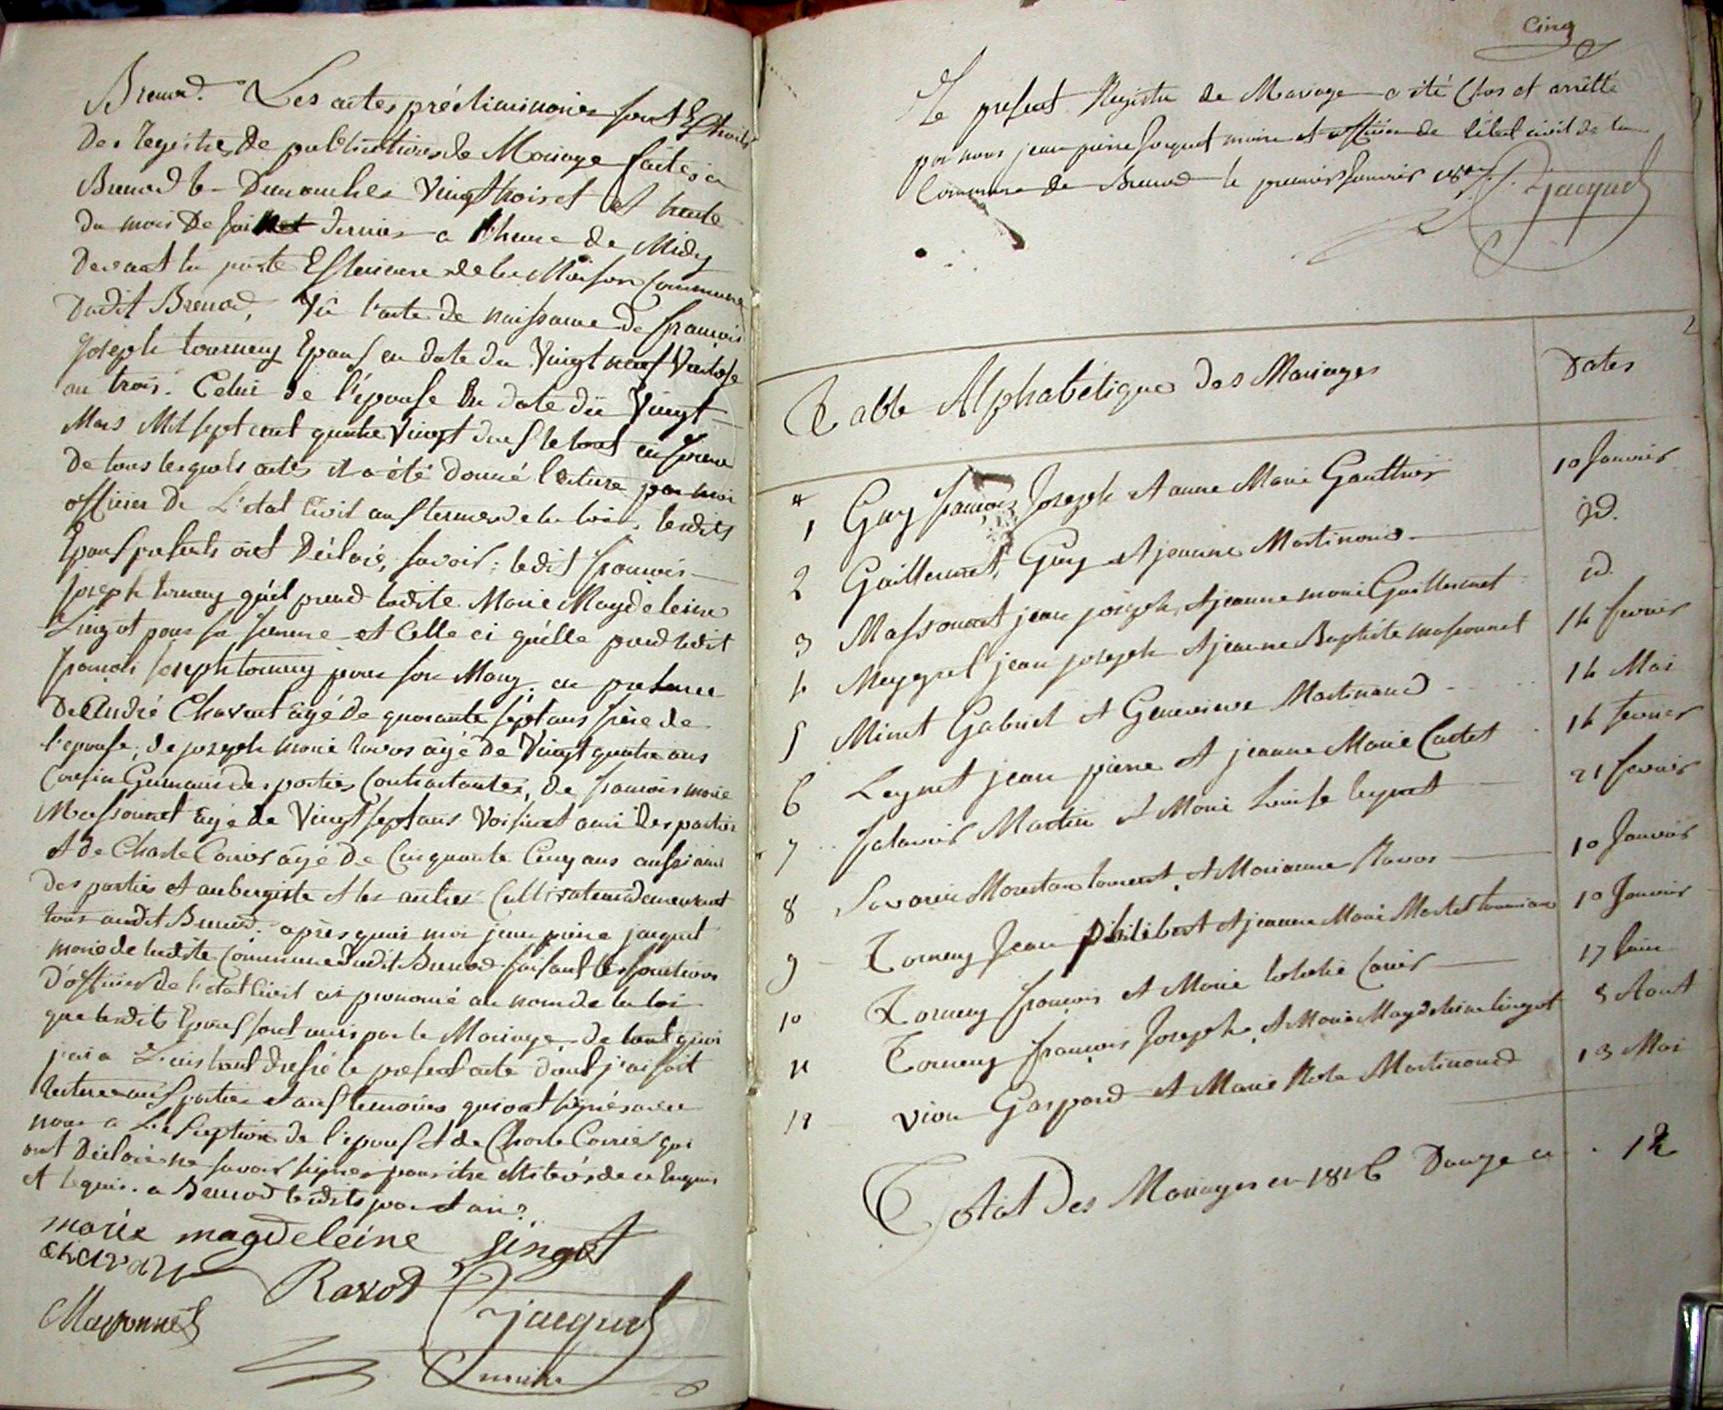 Brenod. Les actes préeliminaires sont Extraits
Des Registres de publications de Mariage faites a
Brenod les Dimanches Vingt trois et et trente
du mois De juillet dernier a l'heure de Midy
Devant la porte Esterieure de la Maison Commune
Dudit Brenod, Vû l'acte de naissance de françois
Joseph tourneny Epoux en date du Vingt neuf Ventose
an trois. Celui de l'épouse En date du Vingt
Mars Mil sept cent quatre Vingt
De tous lesquels actes il a été Donné lecture par moi
officier De L'etat Civil aux termes de la loi. lesdits
Epoux presents ont Déclaré, savoir: ledit françois
Joseph torneny qu'il prend ladite Marie Magdeleine
Lingot pour sa femme et Celle ci qu'elle prend ledit
françois Joseph torneny pour son Mary; en presence
De André Chavent âgé de quarante sept ans frère de
l'epouse; de joseph marie Ravos âgé de Vingt quatre ans
Cousin Germain des parties Contractantes, de françois marie
Massonnet âgé de Vingt sept ans Voisin et ami des parties
et de Charle Carrier âgé De Cinquante Cinq ans aussi ami
des parties et aubergiste et les autres Cultivateurs demeurant
tous audit Brenod. après quoi moi jean pierre jacquet
maire de ladite Commune dudit Brenod faisant les fonctions
D'officier de l'etat Civil ai prononcé au nom de la loi
que lesdits Epoux sont unis par le Mariage, de tout quoi
j'ai a L'instant dressé le present acte dont j'ai fait
lecture aux parties et aux temoins qui ont signés avec
nous a L'exception de l'epoux et de Charle Carrier qui
ont Déclaré ne savoir signer pour être illitrés de ce enquis
et requis. a Brenod lesdits jour et an.
marie magdeleine Lingot
chavant Ravod Jacquet
Massonnet maire
Cinq
Le present Registre de Mariage a été Clos et arrêtté
par nous jean pierre Jacquet maire et officier de l'état civil de la
Commune de Brenod le premier Janvier Jacquet
Table Alphabétique Des Mariages Dates
1 Guy françois Joseph et anne Marie Gauthier 10 Janvier
2 Guillermet Guy et jeanne Martinand id.
3 Massonnet jean joseph et jeanne marie Guillermet id.
4 Meygret jean joseph et jeanne Baptiste massonnet 14 fevrier
5 Minet Gabriel et Genevieve Martinand 14 Mai
6 Leynet jean pierre et jeanne Marie Cartet 14 fevrier
7 Martin et Marie Louise leynet 21 fevrier
8 Savarin laurent et Marianne Ravos 10 Janvier
9 Torneny Jean philibert et jeanne Marie 10 Janvier
10 Torneny françois et Marie Carrier 17 Juin
11 Torneny françois Joseph et Marie Magdeleine lingot 8 Aout
12 Vion Gaspard et Marie Rose Martinand 13 Mai
Total Des Mariages en 1816 Douze ci 12